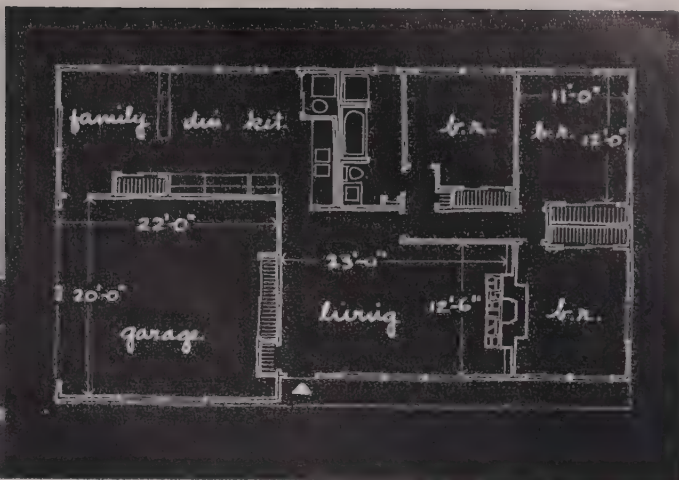 family
din. kit.
b.r.
b.r.
11'-0"
12'-0"
22'-0"
20'-0"
garage
23'-0"
living
12'-6"
b.r.